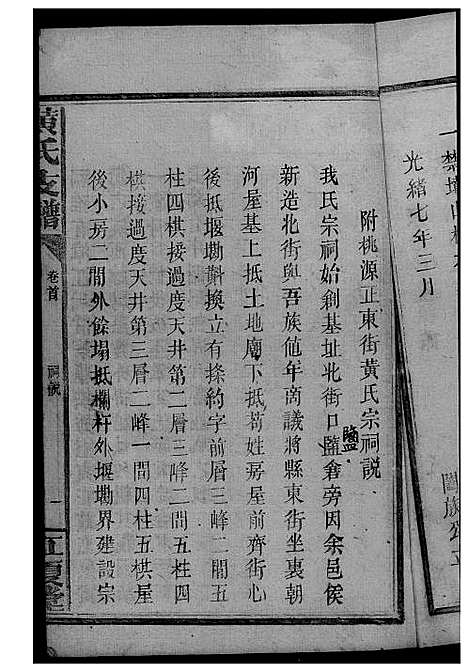 一禁墳山
光緒七年三月
闔族公立
附桃源正東街黃氏宗祠說
我氏宗祠始創基址北街口鹽倉旁因余邑侯
鹽
新造北街與吾族值年商議將縣東街坐裏朝
河屋基上抵土地廟下抵苟姓房屋前齊街心
後抵堰墈斟換立有掾約字前層三峰二間五
柱四棋接過度天井第二層三峰二間五柱四
棋接過度天井第三層二峰一間四柱五棋屋
後小房二間外餘塌抵欄杆外堰墈界建設宗
黃氏支譜
卷首
祠說
一
江夏堂